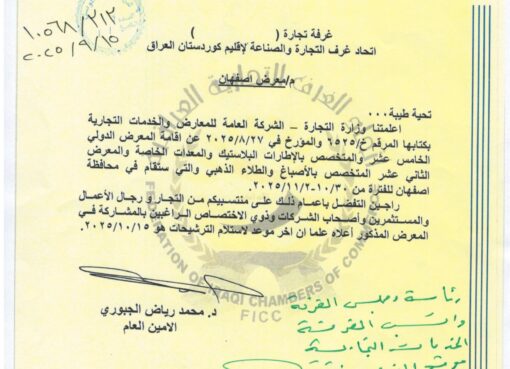 ١٠٥٦٨/٢١٢
٢٠٢٥/٩/١٥
غرفة تجارة ( )
اتحاد غرف التجارة والصناعة لإقليم كوردستان العراق
م/معرض اصفهان
تحية طيبة٠٠٠
اعلمتنا وزارة التجارة – الشركة العامة للمعارض والخدمات التجارية
بكتابها المرقم خ/٦٥٢٥ والمؤرخ في ٢٠٢٥/٨/٢٧ عن اقامة المعرض الدولي
الخامس عشر والمتخصص بالإطارات البلاستيك والمعدات الخاصة والمعرض
الثاني عشر المتخصص بالأصباغ والطلاء الذهبي والتي ستقام في محافظة
اصفهان للفترة من ١٠/٣٠-٢٠٢٥/١١/٢.
راجين التفضل باعمام ذلك على منتسبيكم من التجار و رجال الأعمال
والمستثمرين وأصحاب الشركات وذوي الاختصاص الراغبين بالمشاركة في
المعرض المذكور أعلاه علما ان اخر موعد لاستلام الترشيحات هو ٢٠٢٥/١٠/١٥.
د. محمد رياض الجبوري
الامين العام
FEDERATION OF IRAQI CHAMBERS OF COMMERCE
FICC
رئاسة ومجلس الغرفة